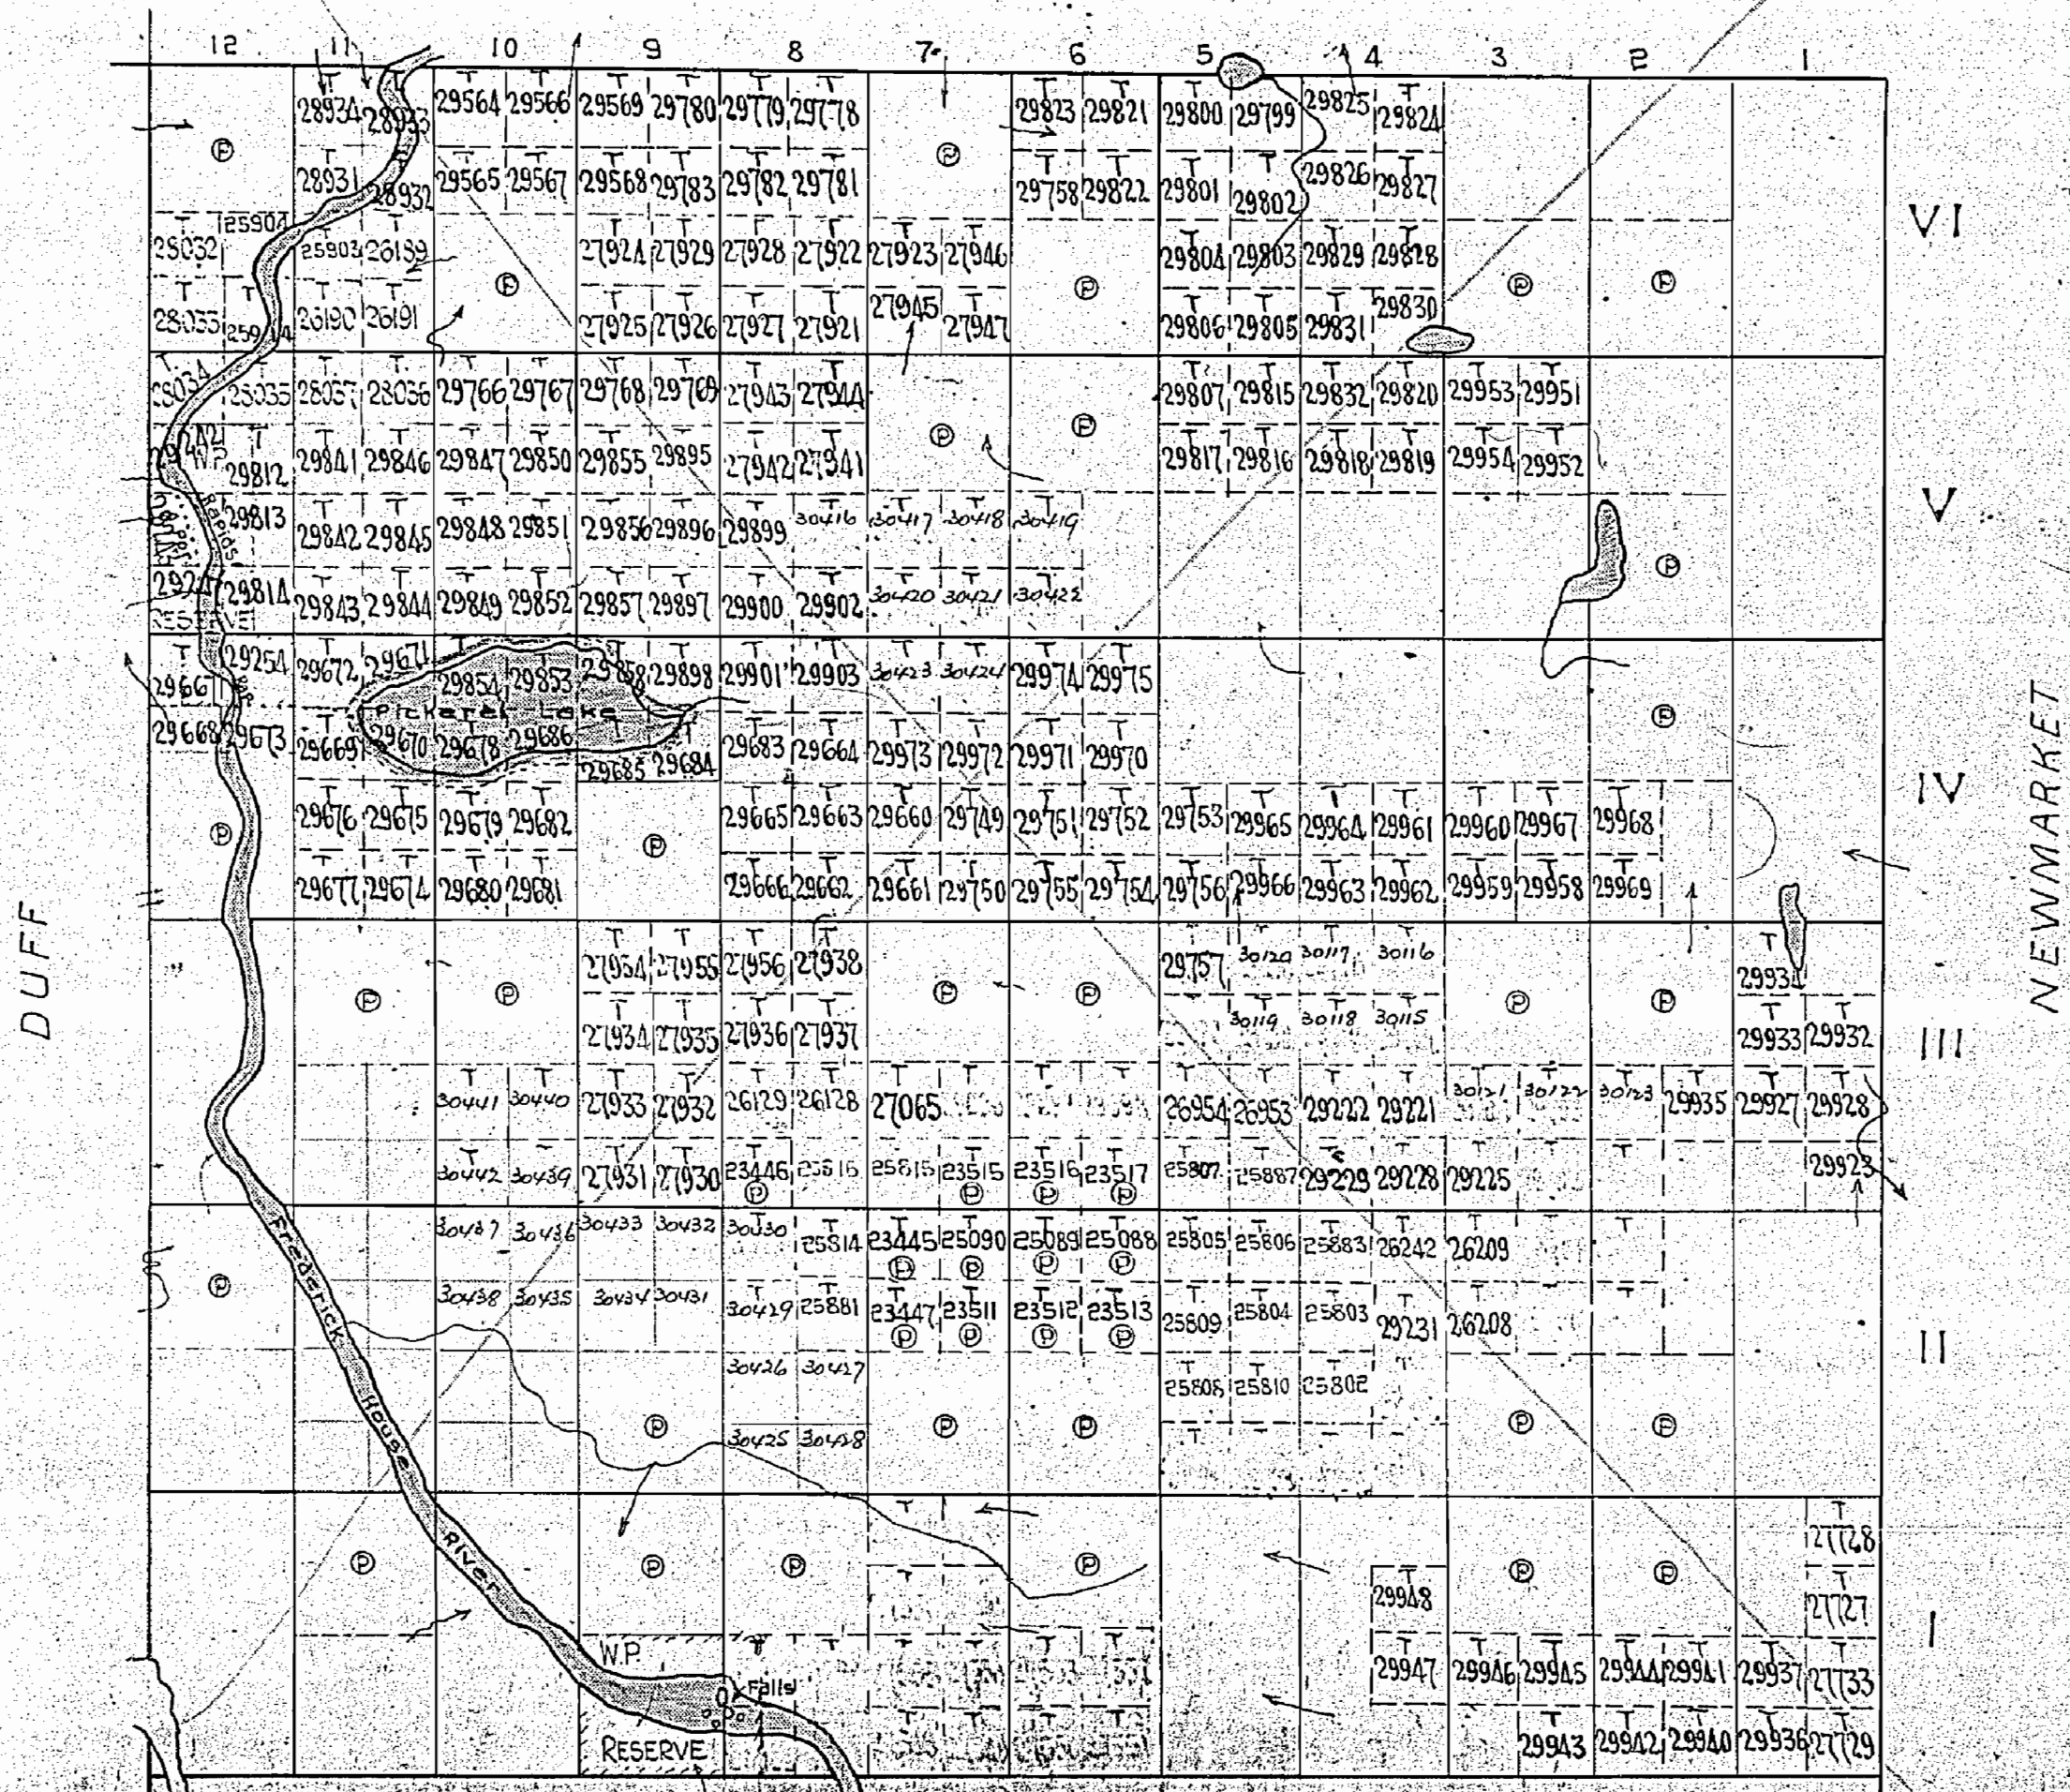 12 11 10 9 8 7 6 5 4 3 2 1
T T T T T T T T T T T T T T
28934 28933 29564 29566 29569 29780 29779 29778 29823 29821 29800 29799 29825 29824
P P
T T T T T T T T T T T T T
28931 28932 29565 29567 29568 29783 29782 29781 29758 29822 29801 29802 29826 29827
VI
T 25904 T T T T T T T T T T T T
28032 25903 26189 27924 27929 27928 27922 27923 27946 29804 29803 29829 29828
P P P P
28033 26190 26191 27925 27926 27927 27921 27945 27947 29806 29805 29831 29830
28034 28035 28037 28036 29766 29767 29768 29769 27943 27944 29807 29815 29832 29820 29953 29951
P P
W.P. 29812 29841 29846 29847 29850 29855 29895 27942 27941 29817 29816 29818 29819 29954 29952
V
Rapids 29813 29842 29845 29848 29851 29856 29896 29899 30416 30417 30418 30419
P
29814 29843 29844 29849 29852 29857 29897 29900 29902 30420 30421 30422
RESERVE
29254 29672 29671 29854 29853 29858 29898 29901 29903 30423 30424 29974 29975
29667
Pickerel Lake
P
29668 29673 29669 29670 29678 29686 29685 29684 29683 29664 29973 29972 29971 29970
NEWMARKET
IV
29676 29675 29679 29682 29665 29663 29660 29749 29751 29752 29753 29965 29964 29961 29960 29967 29968
P P
29677 29674 29680 29681 29666 29662 29661 29750 29755 29754 29756 29966 29963 29962 29959 29958 29969
DUFF
27954 27955 27956 27938 29757 30120 30117 30116 29934
P P P P P P
27934 27935 27936 27937 30119 30118 30115 29933 29932
III
30441 30440 27933 27932 26129 26128 27065 26954 26953 29222 29221 30121 30122 30123 29935 29927 29928
30442 30439 27931 27930 23446 25816 25815 23515 23516 23517 25807 25887 29229 29228 29225 29923
P P P P
30437 30436 30433 30432 30430 25814 23445 25090 25089 25088 25805 25806 25883 26242 26209
P P P P P
30438 30435 30434 30431 30429 25881 23447 23511 23512 23513 25809 25804 25803 29231 26208
P P P P
II
30426 30427 25808 25810 25802
P P P P P
30425 30428
Frederick House River
27728
P P P P P P
29948 27727
I
W.P.
29947 29946 29945 29944 29941 29937 27733
Falls
RESERVE
29943 29942 29940 29936 27729